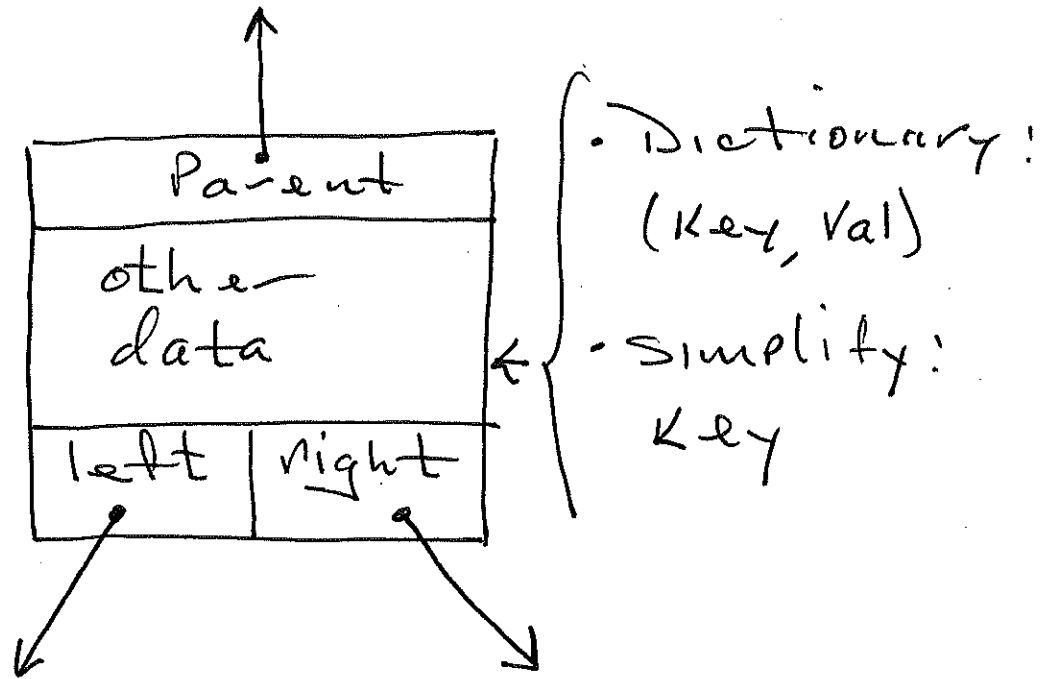 Parent
other
data
left right
· Dictionary:
(Key, Val)
· Simplify:
Key